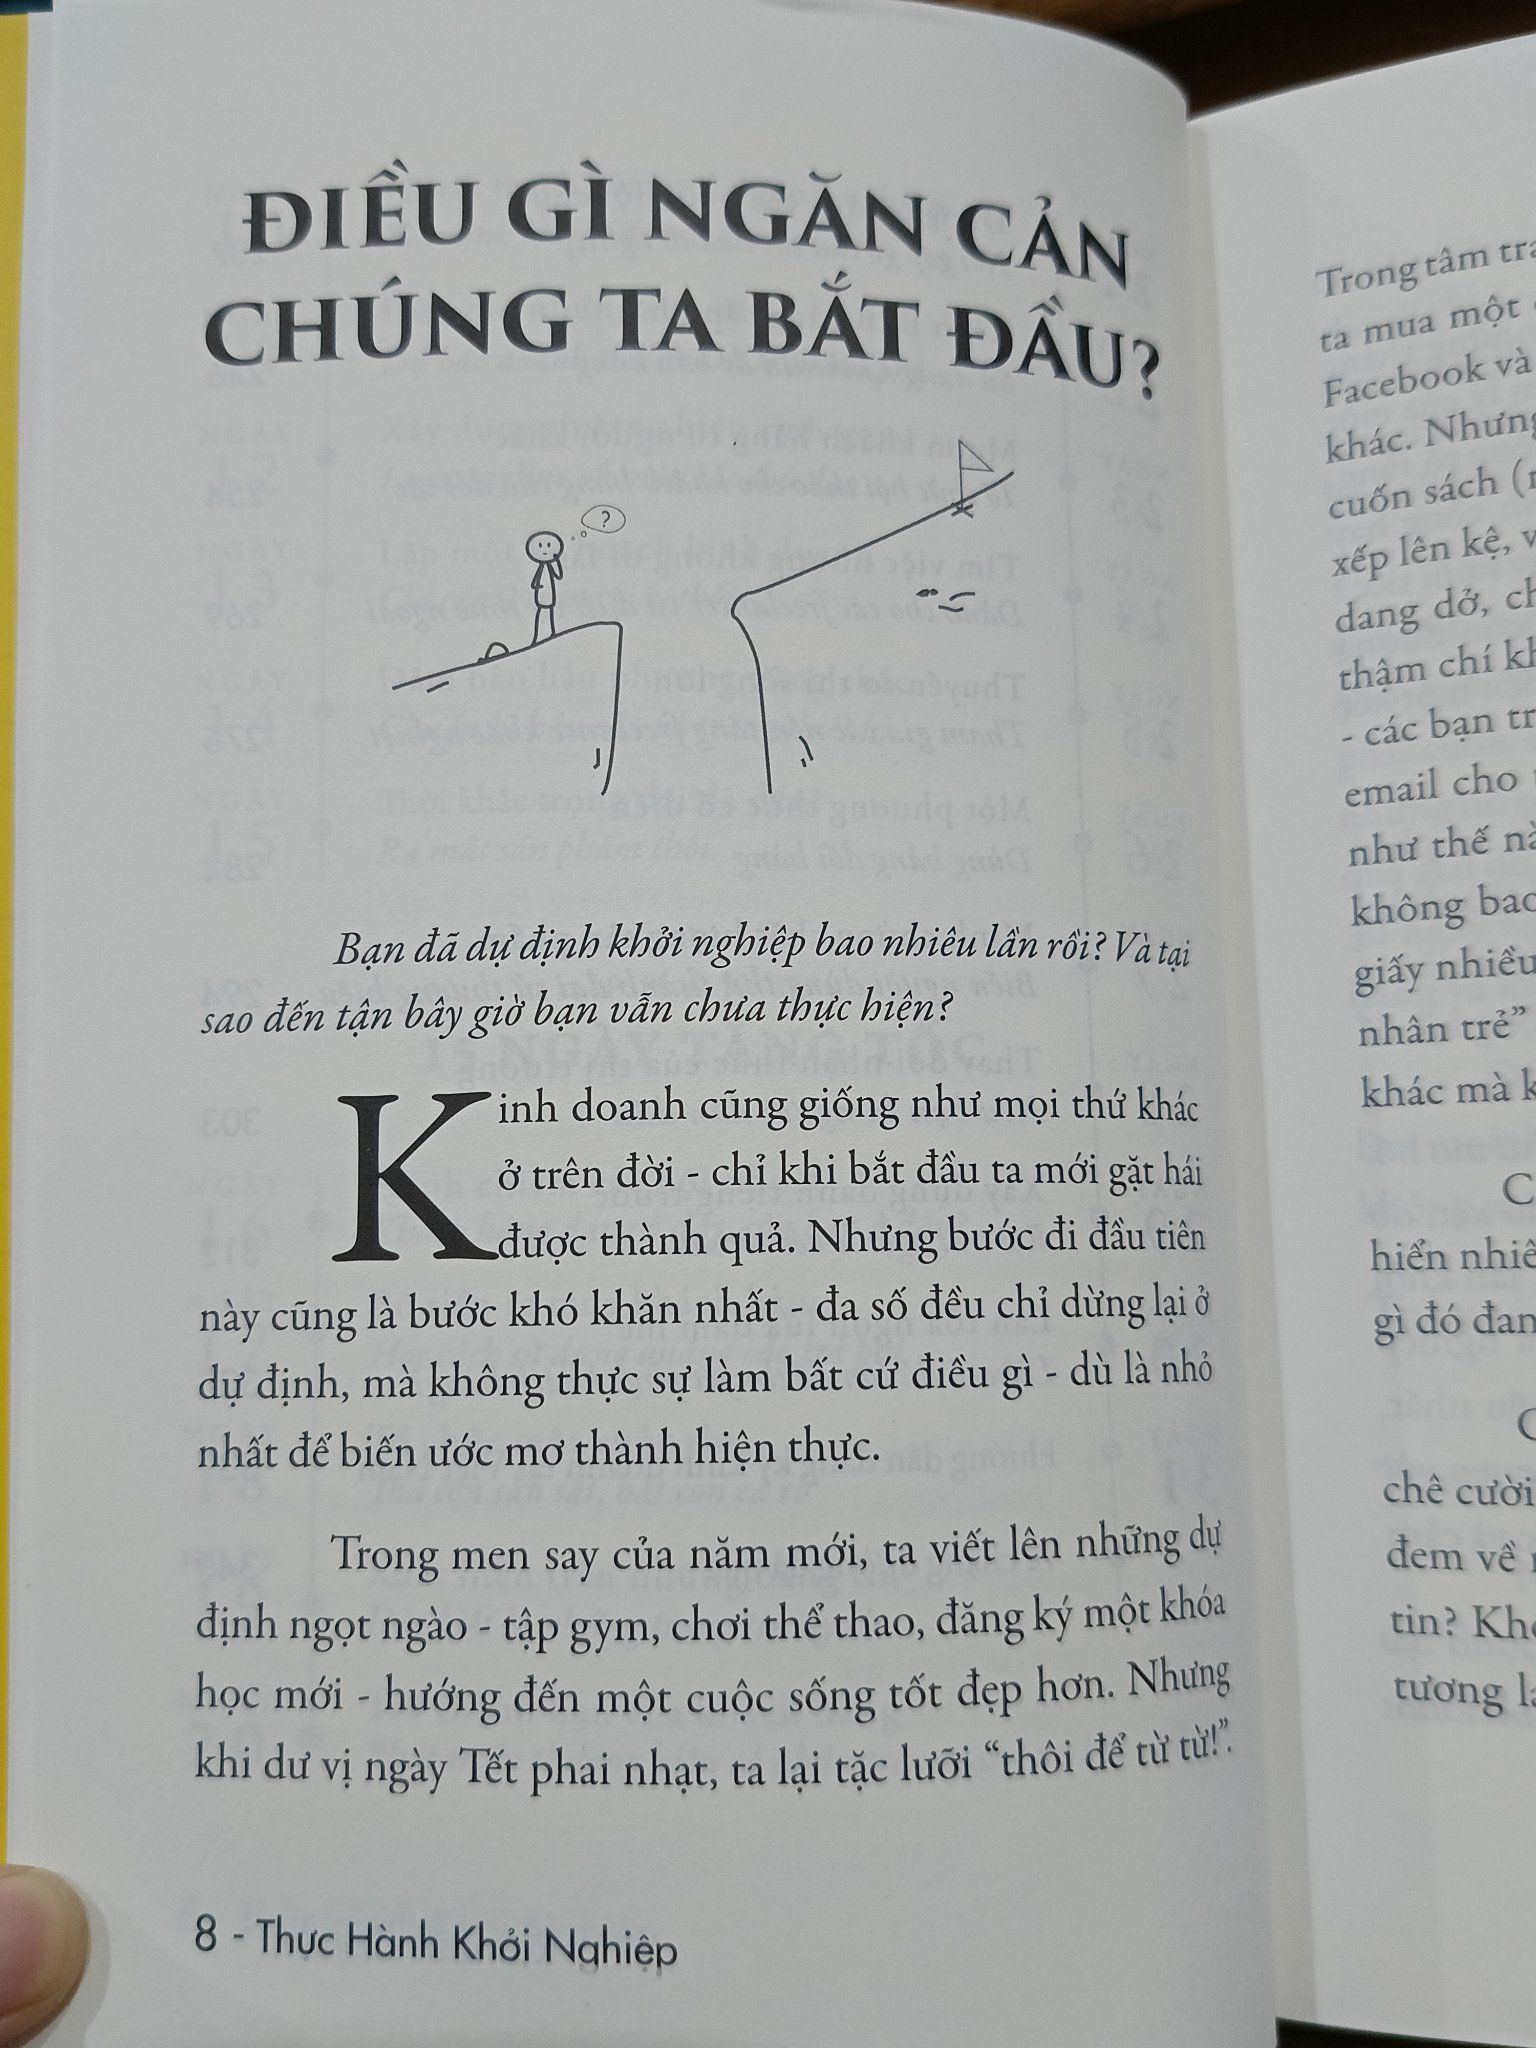 ĐIỀU GÌ NGĂN CẢN
CHÚNG TA BẮT ĐẦU?
?
Bạn đã dự định khởi nghiệp bao nhiêu lần rồi? Và tại
sao đến tận bây giờ bạn vẫn chưa thực hiện?
Kinh doanh cũng giống như mọi thứ khác
ở trên đời - chỉ khi bắt đầu ta mới gặt hái
được thành quả. Nhưng bước đi đầu tiên
này cũng là bước khó khăn nhất - đa số đều chỉ dừng lại ở
dự định, mà không thực sự làm bất cứ điều gì - dù là nhỏ
nhất để biến ước mơ thành hiện thực.
Trong men say của năm mới, ta viết lên những dự
định ngọt ngào - tập gym, chơi thể thao, đăng ký một khóa
học mới - hướng đến một cuộc sống tốt đẹp hơn. Nhưng
khi dư vị ngày Tết phai nhạt, ta lại tặc lưỡi “thôi để từ từ!”.
8 - Thực Hành Khởi Nghiệp
Trong tâm
ta mua một
Facebook và
khác. Nhưng
cuốn sách
xếp lên kệ,
dang dở,
thậm chí
- các bạn
email cho
như thế
không
giấy nhiều
nhân trẻ”
khác mà
hiển
gì đó
chê cười
đem về
tin?
tương